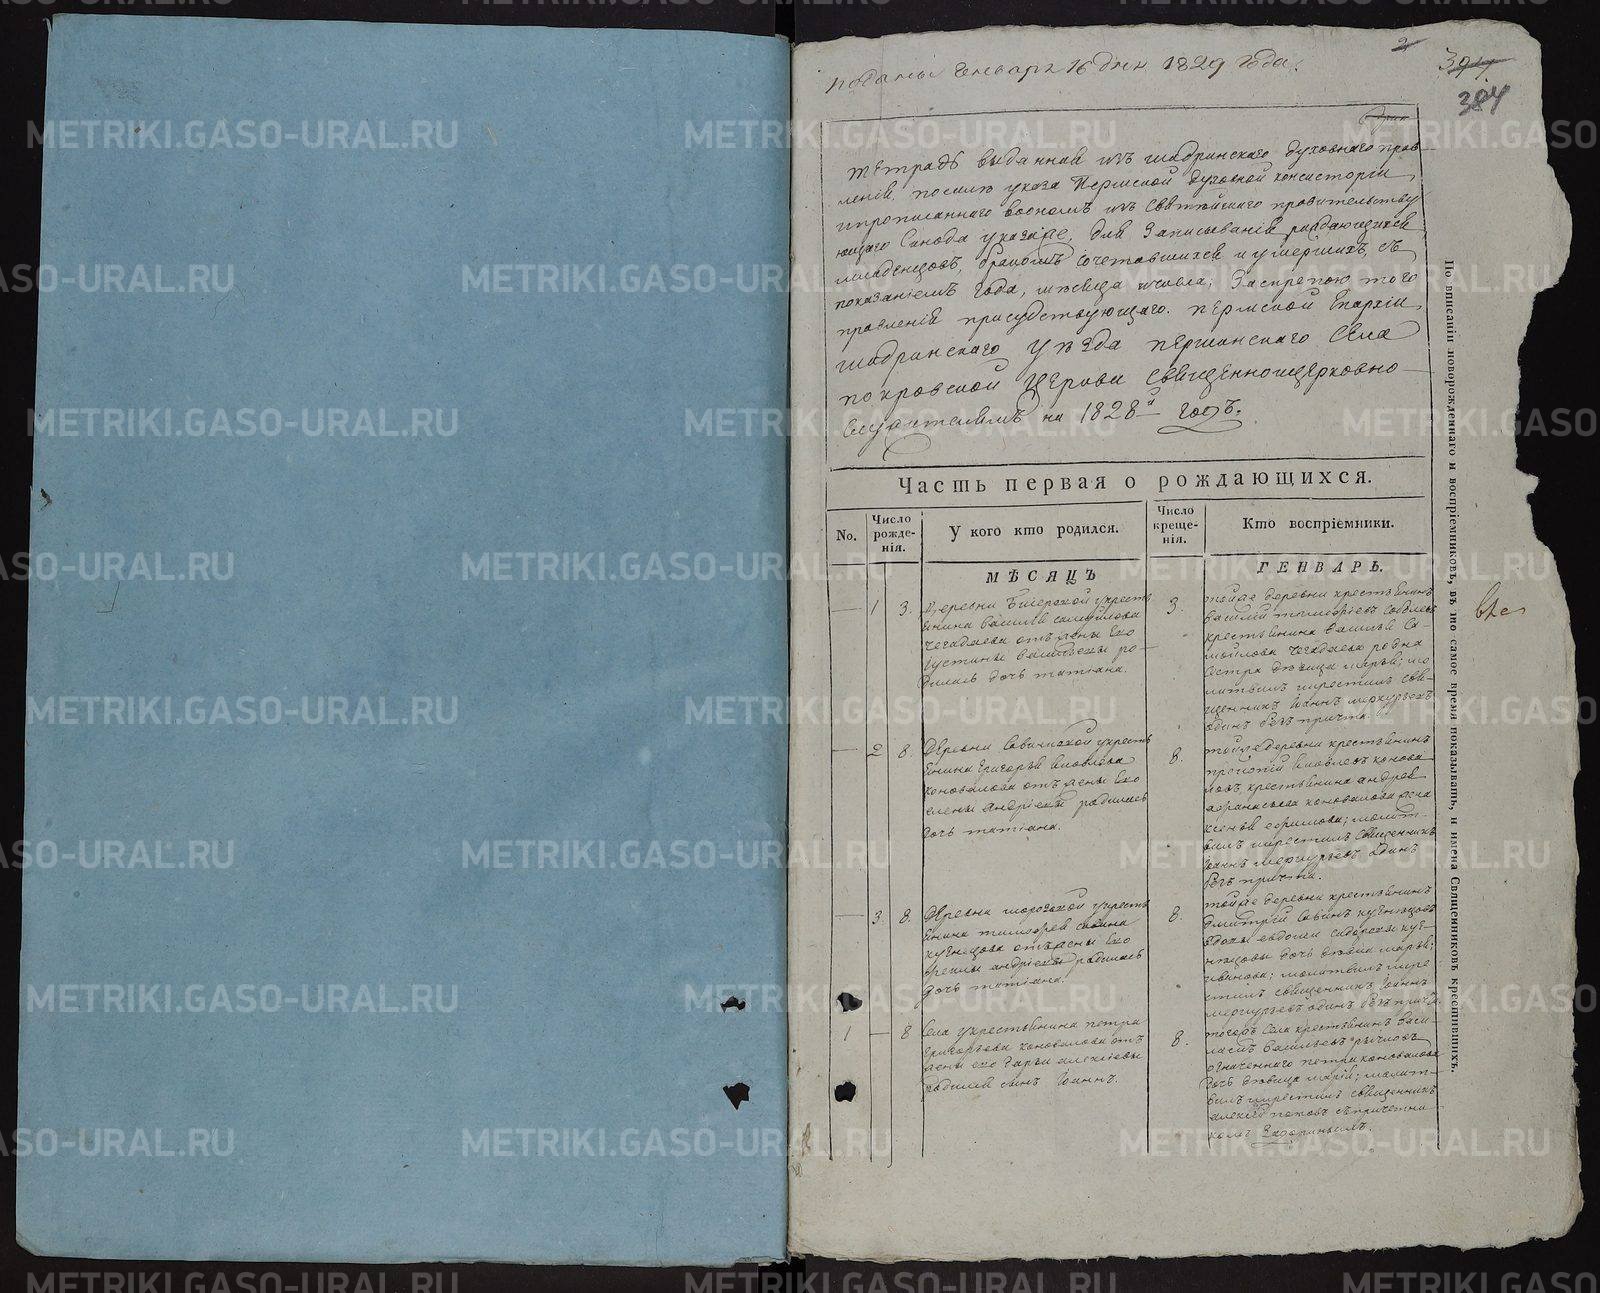 поданы Генваря 16 дня 1829 года.
2
394
384
тетрадь выданная изъ шадринскаго духовнаго прав-
ленія, посилѣ указа Пермской духовной консисторіи
ипрописаннаго воономъ изъ Святѣйшаго правительству
ющаго Синода указае, для записыванія раждающихся
младенцовъ, бракомъ сочетавшихся и умершихъ, съ
показаніемъ года, мѣсяца ичисла; заскрепою того
правленія присудствующаго. пермской Епархіи
шадринскаго уѣзда першинскаго села
покровской церкви священноицерковно-
служителямъ на 1828й годъ.
Часть первая о рождающихся.
No.
Число рожде- нія.
У кого кто родился.
Число креще- нія.
Кто воспріемники.
МѢСЯЦЪ
ГЕНВАРЬ.
1 3. Деревни укресть
янина василья самуйлова
чегадаева отъ жены Его
Іустины васильевы ро-
дилась дочь татіана.
3. тойже деревни крестьянинъ
василій тимофѣевъ
крестьянина василья Са-
мойлова чегадаева родна
сестра дѣвица марья; мо
литвилъ икрестилъ свя-
щенникъ Іоаннъ меркурьевъ
одинъ безъ причта.
2 8. Деревни укресть
янина григорья яковлева
коновалова отъ жены Его
елены андріевы родилась
дочь татіана.
8. тойже деревни крестьянинъ
прокопій яковлевъ конова
ловъ, крестьянина андрея
афанасьева коновалова жена
ксенья ефимова; молит-
вилъ икрестилъ священникъ
Іоаннъ меркурьевъ одинъ
безъ причта.
3. 8. Деревни укресть
янина тимофея савина
кузнецова отъ жены Его
андріевы родилась
дочь татіана.
8. тойже деревни крестьянинъ
дмитрій савинъ кузнецовъ
вдовы евдокіи сидоровы куз-
нецовы дочь дѣвка марья;
иванова; молитвилъ икре
стилъ священникъ Іоаннъ
меркурьевъ одинъ безъ причта.
1 8 Села укрестьянина петра
григорьева коновалова отъ
жены его дарьи алексіевы
родился сынъ Іоаннъ.
8. тогожъ села крестьянинъ васи-
васильевъ
означеннаго петра коновалова
дочь дѣвица марія; молит-
вилъ икрестилъ священникъ
алексій поповъ съпричетни-
комъ
По вписаніи новорожденнаго и воспріемниковъ, въ то самое время показывать, и имена Священниковъ крестившихъ.
METRIKI.GASO-URAL.RU